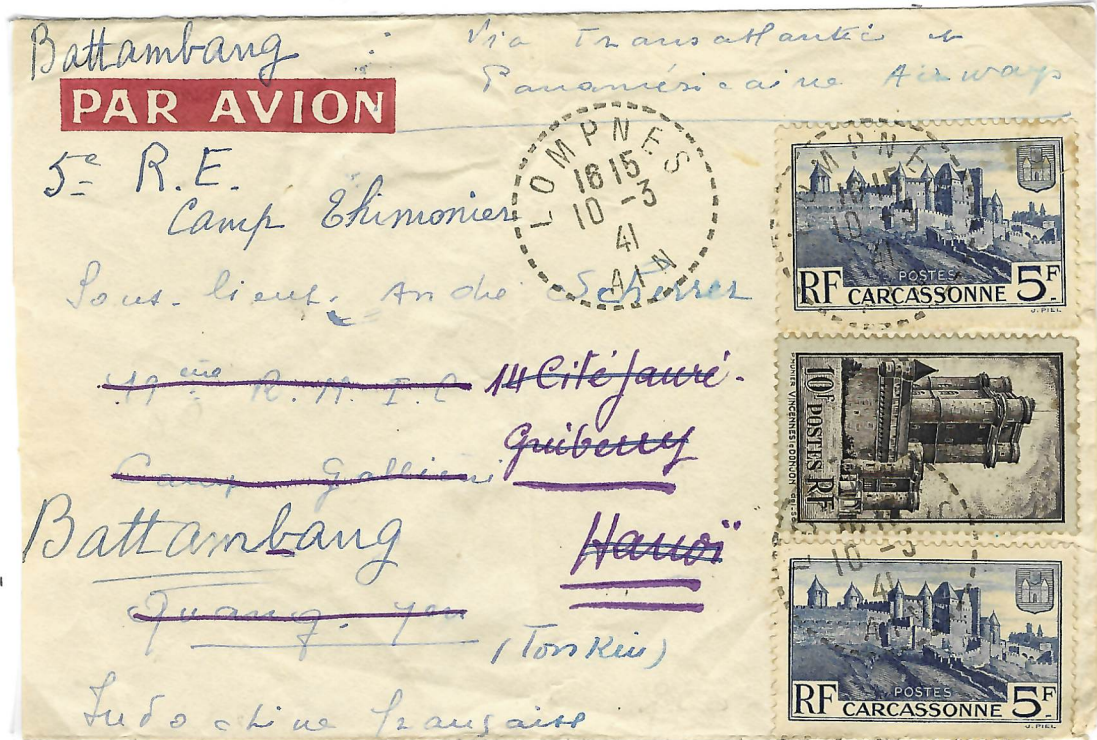 Battambang : Via Transatlantic et
Panaméricaine Airways
PAR AVION
5e R.E.
Camp Thimonier
LOMPNES
16 15
10 -3
41
AIN
Sous-lieut. André Scherrer
ème R.M.I.C 14 Cité Jauré-
Camp Galliéni Guiberry
Battambang
Hanoï
Quang-Yen
(Tonkin)
Indochine française
LOMPNE
16 15
10 -3
41
POSTES
RF CARCASSONNE 5F
J. PIEL
10F POSTES RF
VINCENNES LE DONJON
10 -3
41
POSTES
RF CARCASSONNE 5F
J. PIEL